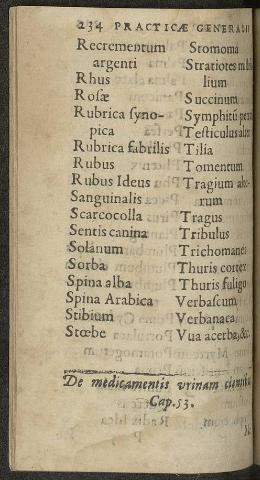 234 PRACTICÆ GENERALIS
Recrementum
argenti
Rhus
Rosæ
Rubrica syno-
pica
Rubrica fabrilis
Rubus
Rubus Ideus
Sanguinalis
Scarcocolla
Sentis canina
Solanum
Sorba
Spina alba
Spina Arabica
Stibium
Stœbe
Stomoma
Stratiotes
lium
Succinum
Symphitũ
Testiculus
Tilia
Tomentum
Tragium
rum
Tragus
Tribulus
Trichomanes
Thuris cortex
Thuris fuligo
Verbascum
Verbanaca
Vua acerba, &c.
De medicamentis vrinam
Cap. 53.